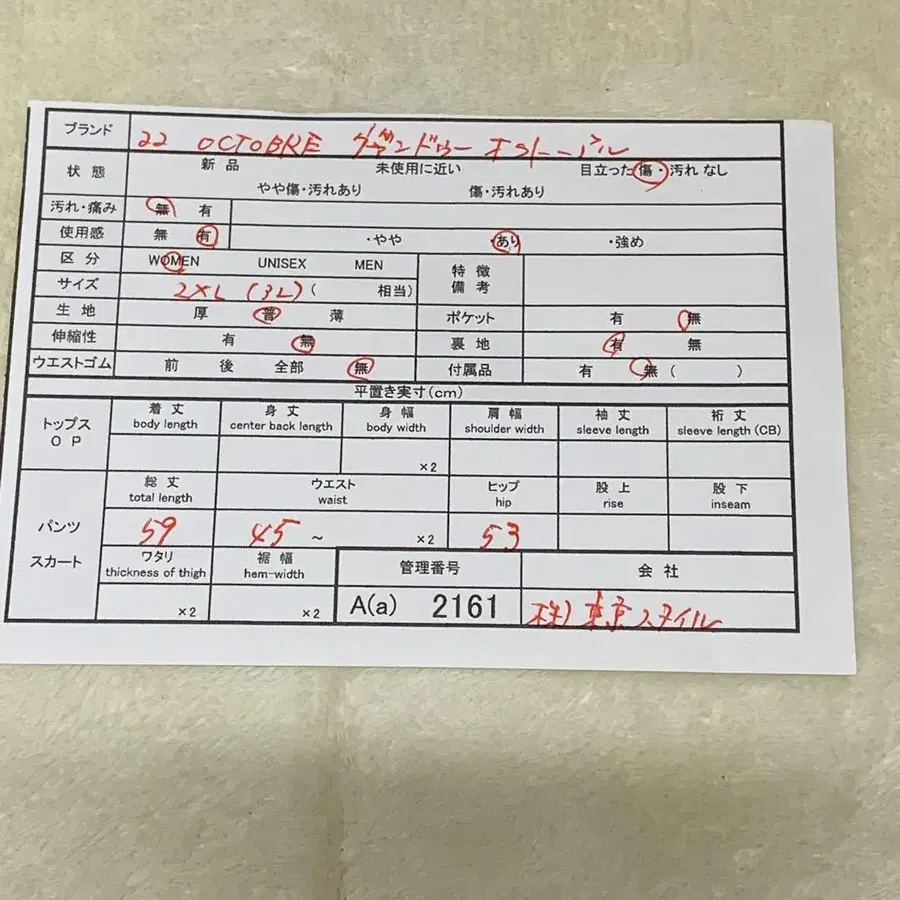 ブランド 22 OCTOBRE ヴァンドゥー オクトーブル
状態 新品 未使用に近い 目立った傷・汚れなし
やや傷・汚れあり 傷・汚れあり
汚れ・痛み 無 有
使用感 無 有 ・やや ・あり ・強め
区分 WOMEN UNISEX MEN 特徴
備考
サイズ 2XL (3L) ( 相当)
生地 厚 普 薄 ポケット 有 無
伸縮性 有 無 裏地 有 無
ウエストゴム 前 後 全部 無 付属品 有 無 ( )
平置き実寸(cm)
トップス
O P
着丈 身丈 身幅 肩幅 袖丈 裄丈
body length center back length body width shoulder width sleeve length sleeve length (CB)
×2
パンツ
スカート
総丈 ウエスト ヒップ 股上 股下
total length waist hip rise inseam
59 45 ~ ×2 53
ワタリ 裾幅 管理番号 会社
thickness of thigh hem-width
×2 ×2 A(a) 2161 株)東京スタイル